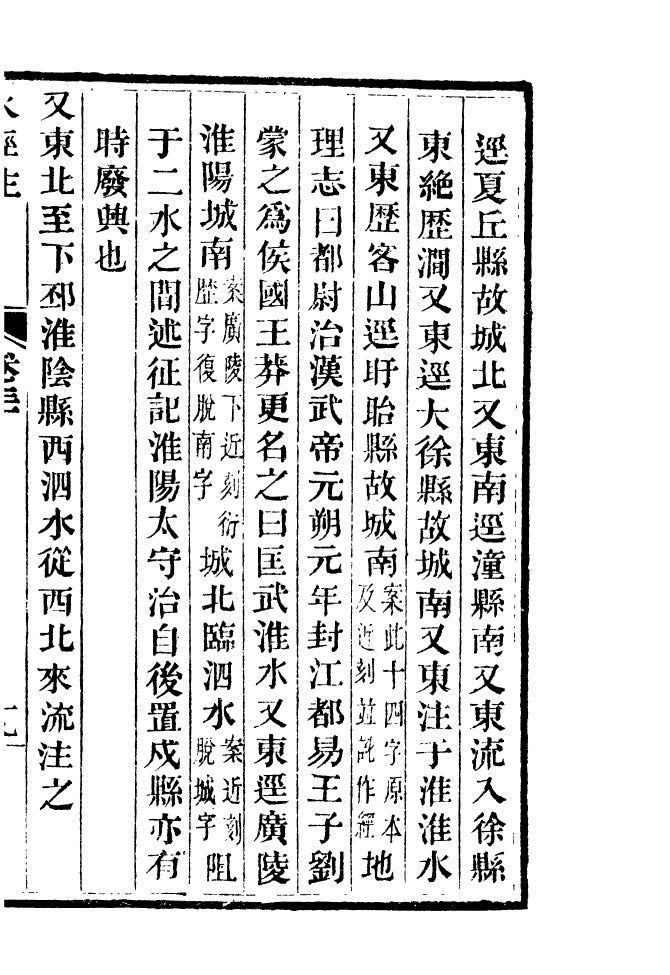 逕夏丘縣故城北又東南逕潼縣南又東流入徐縣
東絶歷澗又東逕大徐縣故城南又東注于淮淮水
又東歷客山逕盱眙縣故城南案此十四字原本及近刻並訛作經地
理志曰都尉治漢武帝元朔元年封江都易王子劉
蒙之爲侯國王莽更名之曰匡武淮水又東逕廣陵
淮陽城南案廣陵下近刻衍歷字復脫南字城北臨泗水案近刻脫城字阻
于二水之間述征記淮陽太守治自後置戍縣亦有
時廢興也
又東北至下邳淮陰縣西泗水從西北來流注之
水經注 卷三十